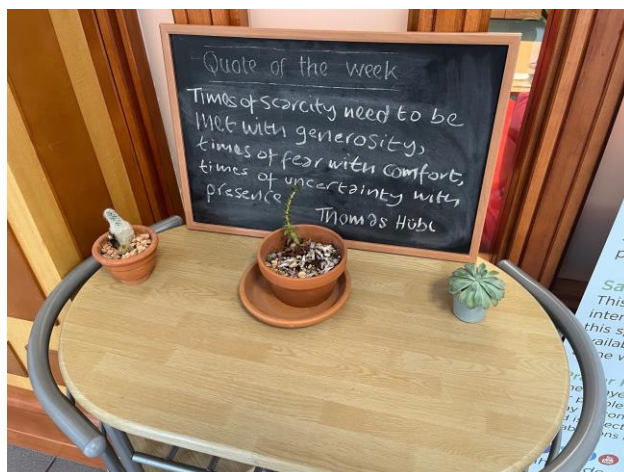 Quote of the week
Times of scarcity need to be
met with generosity,
times of fear with comfort,
times of uncertainty with
presence
Thomas Hübl
Sa
This
inter
this s